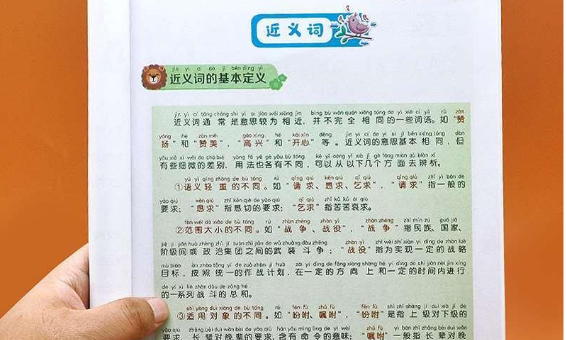 近义词
近义词的基本定义
近义词通常是意思较为相近，并不完全相同的一些词语。如“赞
扬”和“赞美”，“高兴”和“开心”等。近义词的意思基本相同，但
有些细微的差别，用法也各有不同，可以从以下几个方面去辨析。
①语义轻重的不同。如“请求、恳求、乞求”，“请求”指一般的
要求；“恳求”指恳切的要求；“乞求”指苦苦哀求。
②范围大小的不同。如“战争、战役”，“战争”指民族、国家、
阶级间或政治集团之间的武装斗争；“战役”指为实现一定的战略
目标，按照统一的作战计划，在一定的方向上和一定的时间内进行
的一系列战斗的总和。
③适用对象的不同。如“吩咐、嘱咐”，“吩咐”是指上级对下级的
要求，长辈对晚辈的要求，含有命令的意味；“嘱咐”一般指长辈对晚